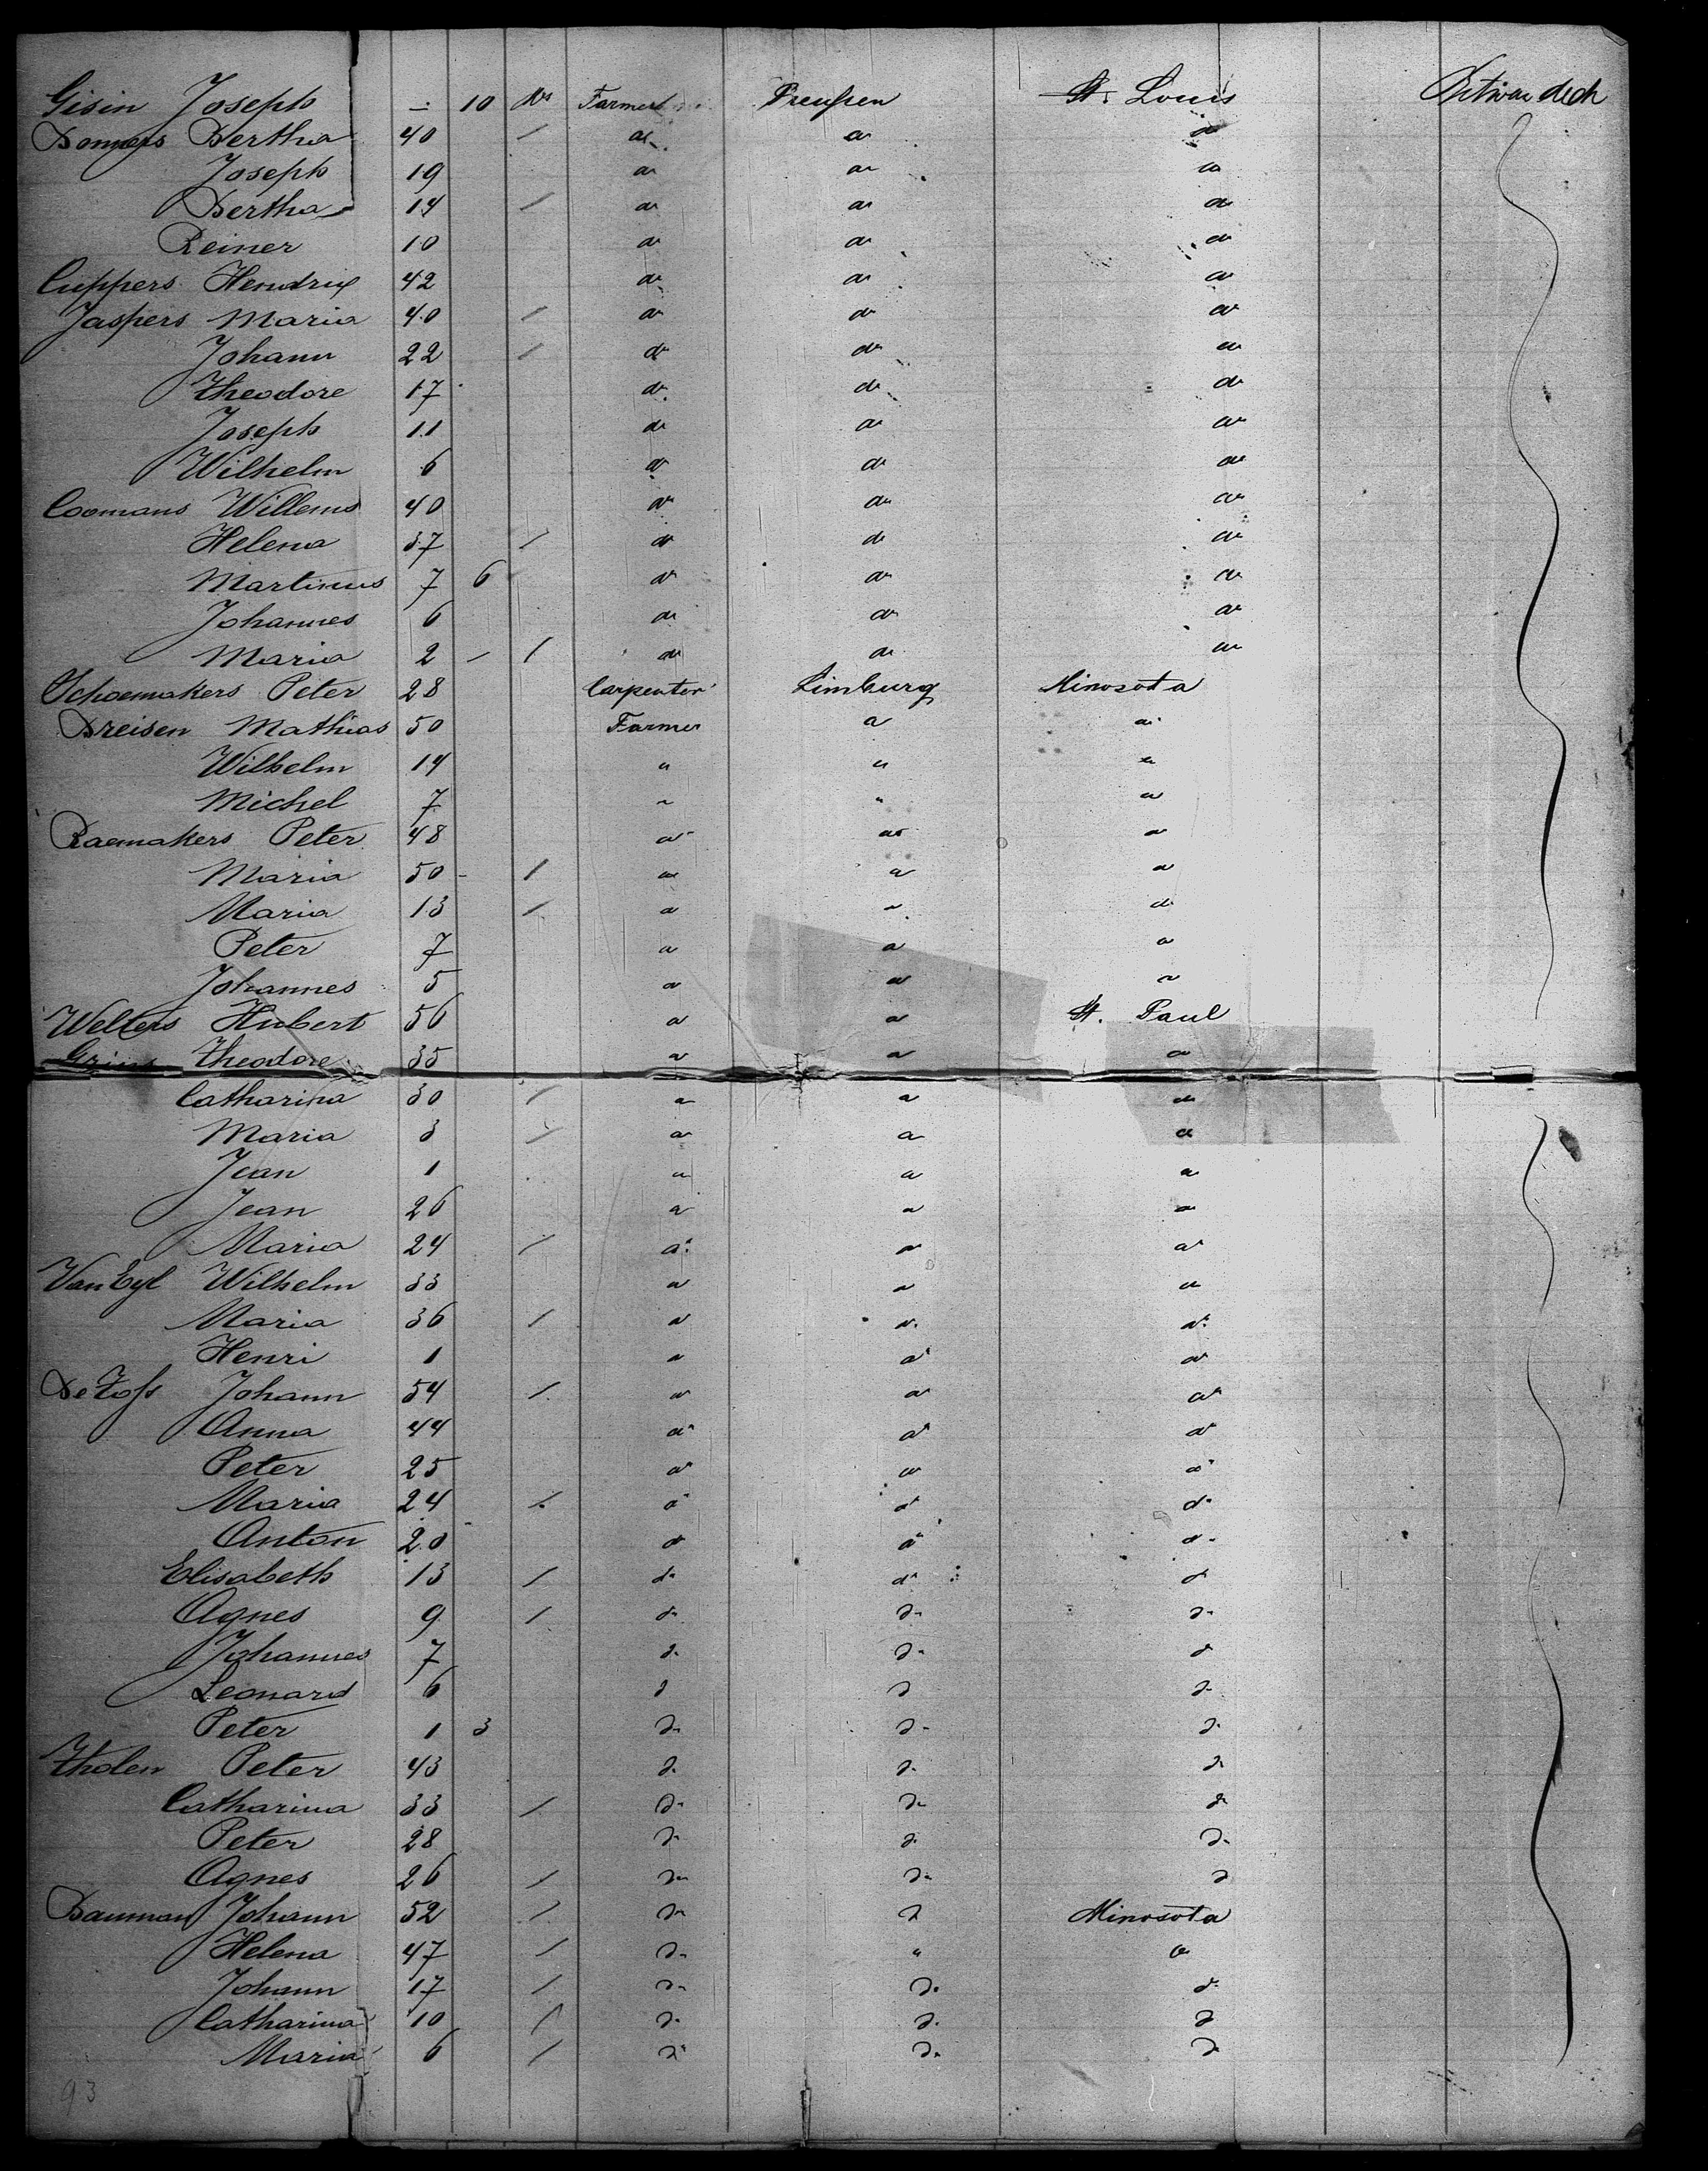 Gisin Joseph - 10 do Farmer Preußen St. Louis Betwee deck
Bertha 40 / do do do
Joseph 19 do do do
Bertha 14 / do do do
Reiner 10 do do do
Cuppers Hendrix 42 do do do
Jaspers Maria 40 / do do do
Johann 22 / do do do
Theodore 17 do do do
Joseph 11 do do do
Wilhelm 6 do do do
Coomans Willems 40 do do do
Helena 37 / do do do
Martinus 7 6 do do do
Johannes 6 do do do
Maria 2 - / do do do
Schoemakers Peter 28 Carpenter Limburg Minosota
Dreisen Mathias 50 Farmer do do
Wilhelm 14 " " "
Michel 7 " " "
Raemakers Peter 48 do do do
Maria 50 - / do do do
Maria 13 / do do do
Peter 7 do do do
Johannes 5 do do do
Welters Hubert 56 do do St. Paul
Theodore 35 do do do
Catharina 30 / do do do
Maria 3 / do do do
Jean 1 do do do
Jean 26 do do do
Maria 24 / do do do
Van Eyl Wilhelm 33 do do do
Maria 36 / do do do
Henri 1 do do do
Johann 54 / do do do
Anna 44 do do do
Peter 25 do do do
Maria 24 / do do do
Anton 20 do do do
Elisabeth 13 / do do do
Agnes 9 / do do do
Johannes 7 do do do
Leonard 6 do do do
Peter 1 3 do do do
Tholen Peter 43 do do do
Catharina 33 / do do do
Peter 28 do do do
Agnes 26 / do do do
Bauman Johann 52 / do do Minosota
Helena 47 / do " do
Johann 17 / do do do
Catharina 10 / do do do
Maria 6 / do do do
93